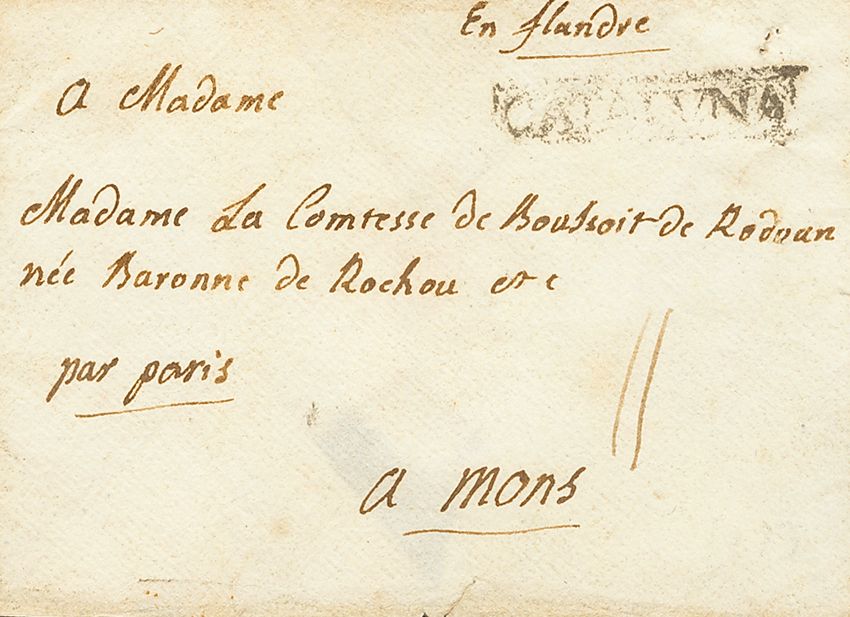 En flandre
CATALUNA
a Madame
Madame La Comtesse de Boussoit de Rodoan
née Baronne de Rochou etc
par paris
a mons